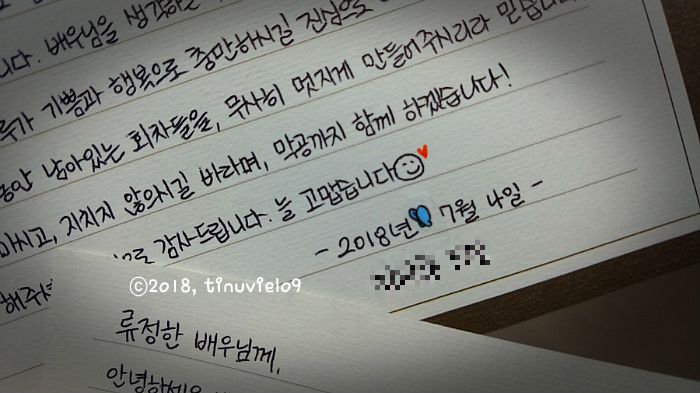 니다. 배우님을 생각하는
루가 기쁨과 행복으로 충만하시길 진심으로
동안 남아있는 회차들을, 무사히 멋지게 만들어주시리라 믿습니다
마시고, 지치지 않으시길 바라며, 막공까지 함께 하겠습니다!
감사드립니다. 늘 고맙습니다
- 2018년 7월 4일 -
©2018, tinuviel09
류정한 배우님께,
안녕하세요